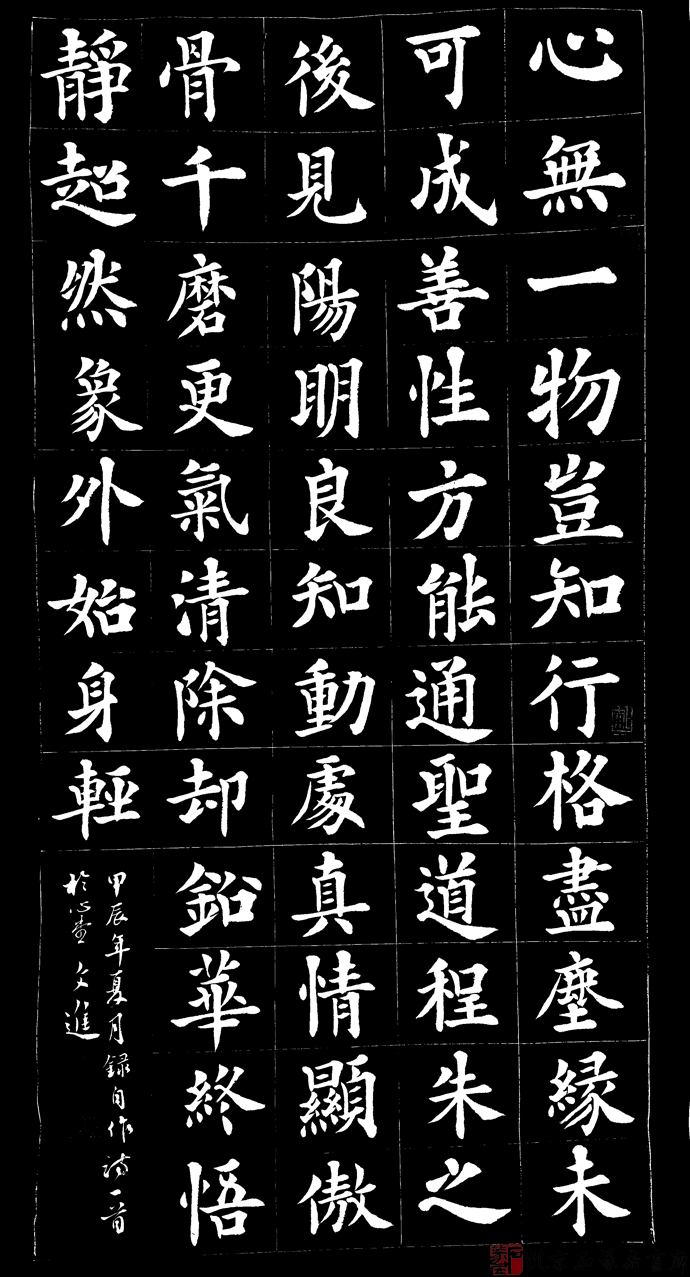 心無一物豈知行格盡塵緣未
可成善性方能通聖道程朱之
後見陽明良知動處真情顯傲
骨千磨更氣清除却鉛華終悟
靜超然象外始身輕
甲辰年夏月録自作詩一首
於心畫 文進